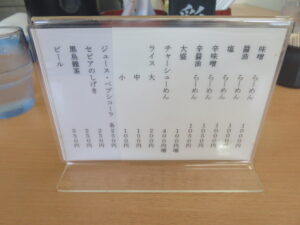 味噌 らーめん 1000円
醤油 らーめん 1000円
塩 らーめん 1000円
辛味噌 らーめん 1050円
辛醤油 らーめん 1050円
大盛 100円増
チャーシューめん 400円増
ライス 大 200円
中 150円
小 100円
ジュース・ペプシコーラ 各250円
セピアのしげき 250円
黒烏龍茶 250円
ビール 550円